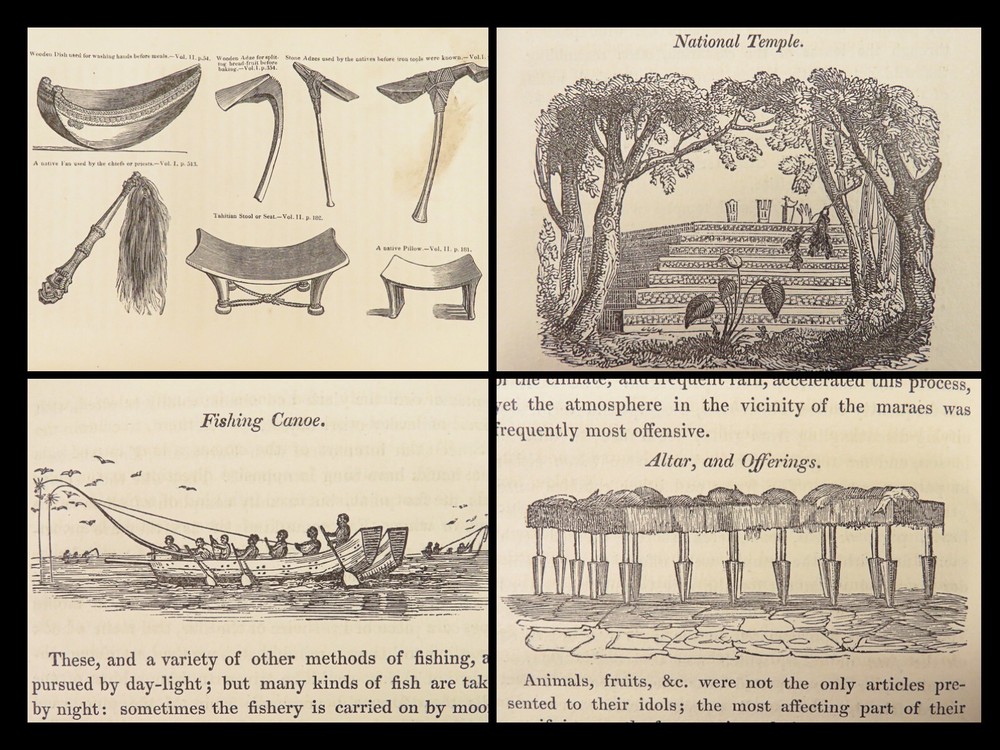 Wooden Dish used for washing hands before meals.—Vol. II. p.54.
Wooden Adze for split-
ting bread-fruit before
baking.—Vol. I. p.354.
Stone Adzes used by the natives before iron tools were known.—Vol.
A native Fan used by the chiefs or priests.—Vol. I. p. 513.
Tahitian Stool or Seat.—Vol. II. p. 102.
A native Pillow.—Vol. II. p. 101.
National Temple.
Fishing Canoe.
These, and a variety of other methods of fishing, a
pursued by day-light; but many kinds of fish are tak
by night: sometimes the fishery is carried on by moo
of the climate, and frequent rain, accelerated this process,
yet the atmosphere in the vicinity of the maraes was
frequently most offensive.
Altar, and Offerings.
Animals, fruits, &c. were not the only articles pre-
sented to their idols; the most affecting part of their